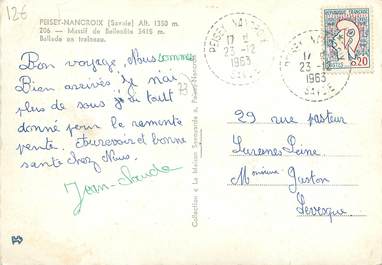 12€
PEISEY-NANCROIX (Savoie) Alt. 1350 m.
206 — Massif de Bellecôte 3415 m.
Ballade en traîneau.
PEISEY NANCROIX
17 H
23-12
1963
SAVOIE
PEISEY NANCROIX
17 H
23-12
1963
SAVOIE
REPUBLIQUE FRANÇAISE
POSTES
0,20
Bon voyage, Nous sommes
Bien arrivés je n'ai
plus de sous j'ai tout
donné pour le remonte
pente. Aurevoir et bonne
sante chez Nous.
Jean-Claude
73
Collection « La Maison Savoyarde »
29 rue pasteur
Suresnes Seine
Monsieur Gaston
Levesque